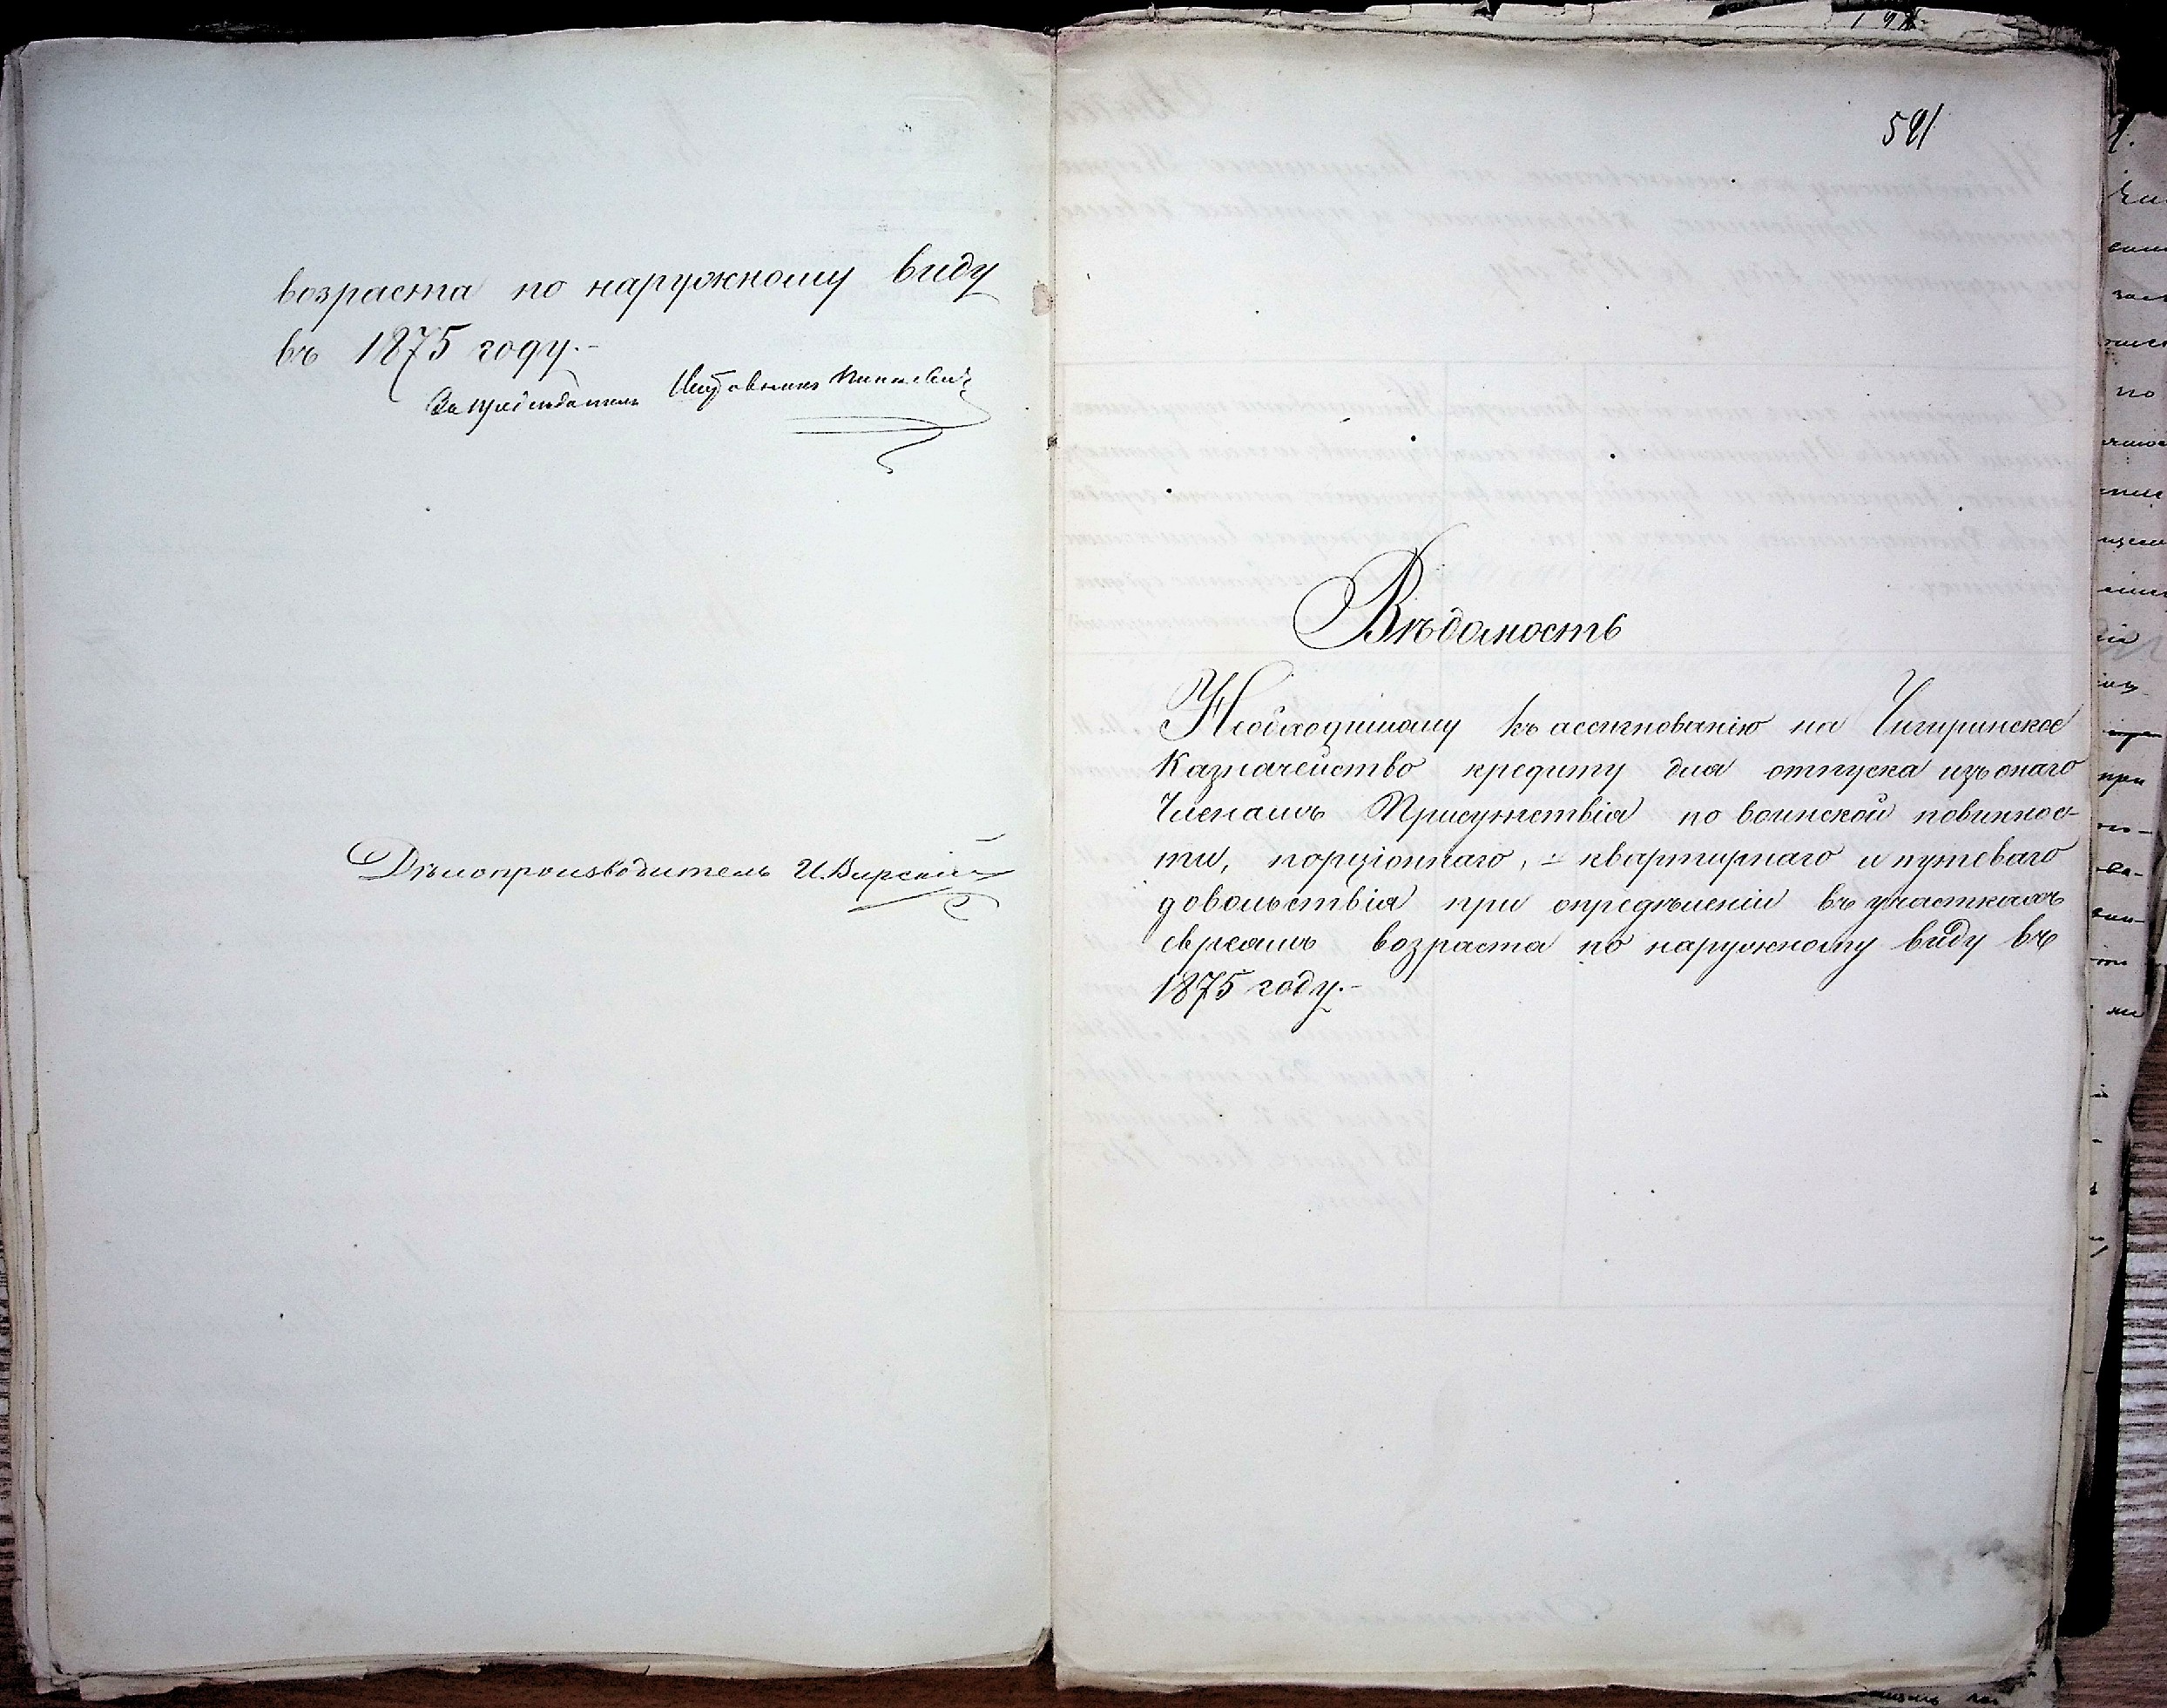 возраста по наружному виду
въ 1875 году.-
За председателя Исправникъ
Дѣлопроизводитель И. Вирскій
521
Вѣдомость
Необходимому къ ассигнованію на Чигиринское
Казначейство кредиту для отпуска изъ онаго
Членамъ Присутствія по воинской повиннос-
ти, порціоннаго, квартирнаго и путеваго
довольствія при опредѣленіи въ участкахъ
евреямъ возраста по наружному виду въ
1875 году.-